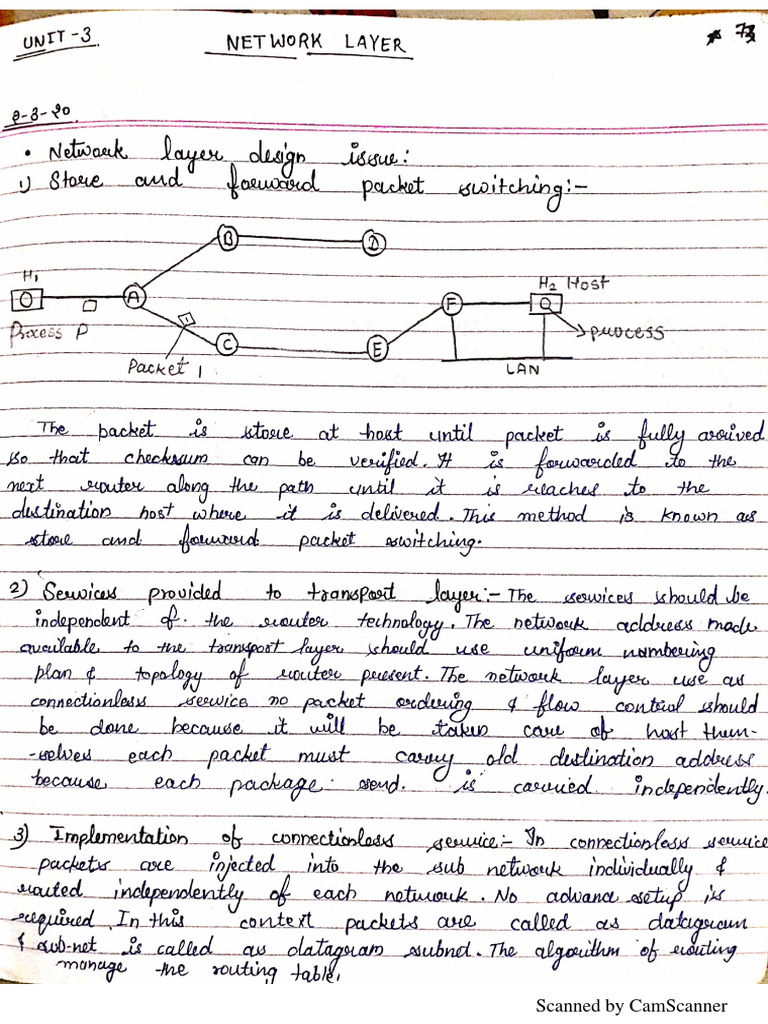 UNIT-3
NETWORK LAYER
73
२-३-२०
• Network layer design issue:
1) Store and forward packet switching:-
B
D
H1
A
F
H2 Host
Process P
1
C
E
process
Packet 1
LAN
The packet is store at host until packet is fully arrived
so that checksum can be verified. It is forwarded to the
next router along the path until it is reaches to the
destination host where it is delivered. This method is known as
store and forward packet switching.
2) Services provided to transport layer:- The services should be
independent of the router technology. The network address made
available to the transport layer should use uniform numbering
plan & topology of router present. The network layer use as
connectionless service no packet ordering & flow control should
be done because it will be taken care of host them-
-selves each packet must carry old destination address
because each package send. is carried independently.
3) Implementation of connectionless service:- In connectionless service
packets are injected into the sub network individually &
routed independently of each network. No advance setup is
required. In this context packets are called as datagram
& sub-net is called as datagram subnet. The algorithm of routing
manage the routing table.
Scanned by CamScanner